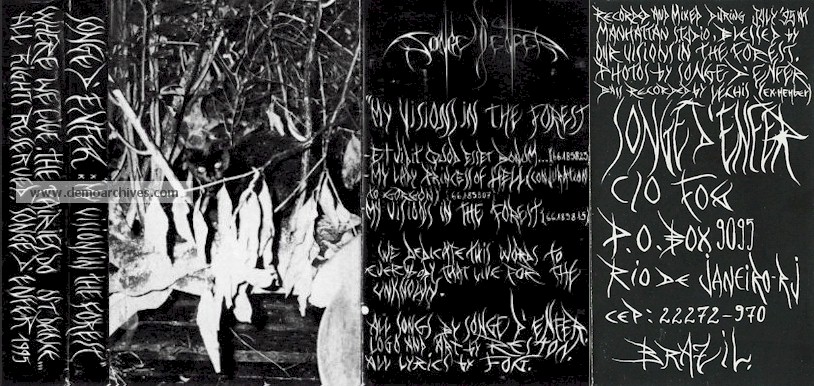 WHERE WE LIVE THE SUN IS NOT
ALL RIGHTS RESERVED SONGE D'ENFER 1995
SONGE D'ENFER
VISIONS IN THE FOREST"
www.demoarchives.com
SONGE D'ENFER
"MY VISIONS IN THE FOREST
-ET VIDIT QUOD ESSET BONUM...
-MY LADY PRINCESS OF HELL (CONJURATION
TO GORGON)
MY VISIONS IN THE FOREST
WE DEDICATE THIS WORDS TO
EVERYBODY THAT LIVE FOR THE
UNKNOWN.
ALL SONGS BY SONGE D'ENFER
LOGO AND ART BY
ALL LYRICS BY FOG.
RECORDED AND MIXED DURING JULY '95 AT
MANHATTAN STUDIO. BLESSED BY
OUR VISIONS IN THE FOREST.
PHOTOS BY SONGE D'ENFER
RECORDED BY (EX-MEMBER)
SONGE D'ENFER
C/O FOG
P.O. BOX 9095
RIO DE JANEIRO-RJ
CEP: 22272-970
BRAZIL.